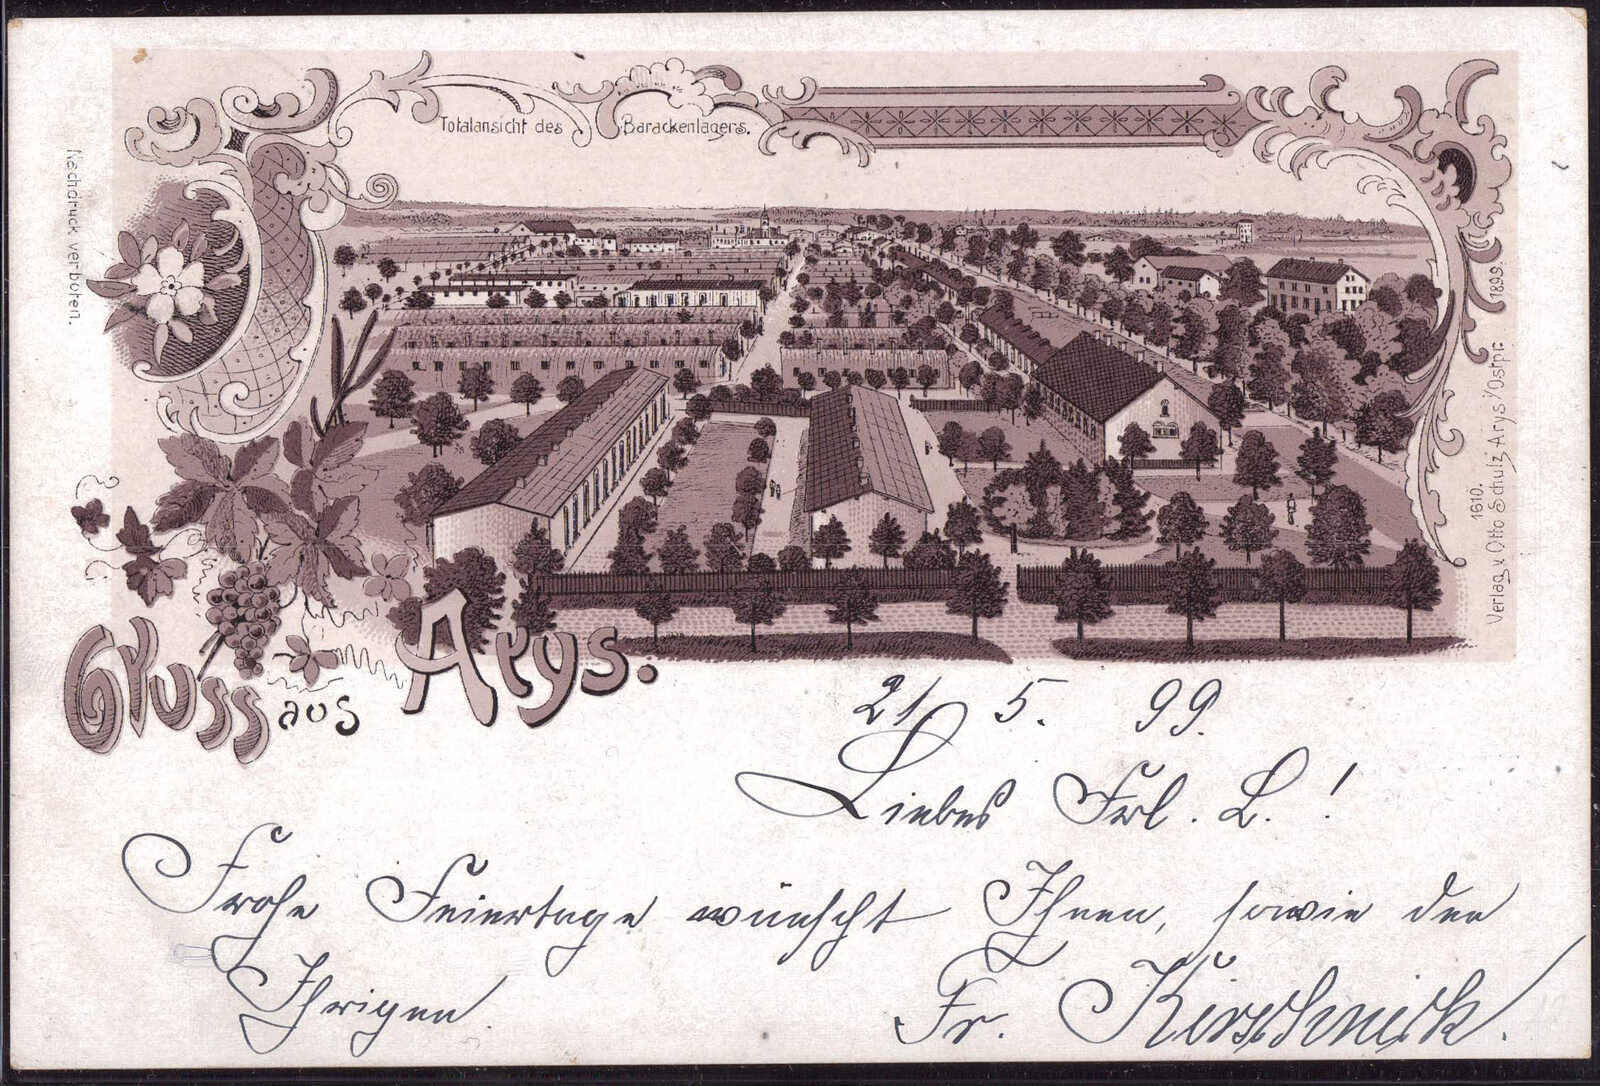 Totalansicht des Barackenlagers.
Nachdruck verboten.
1610. 1899.
Verlag v. Otto Schulz, Arys /Ostpr.
Gruss aus Arys.
21 5. 99.
Liebes Frl. L.!
Frohe Feiertage wünscht Ihnen, sowie den
Ihrigen.
Fr. Kirschnick.